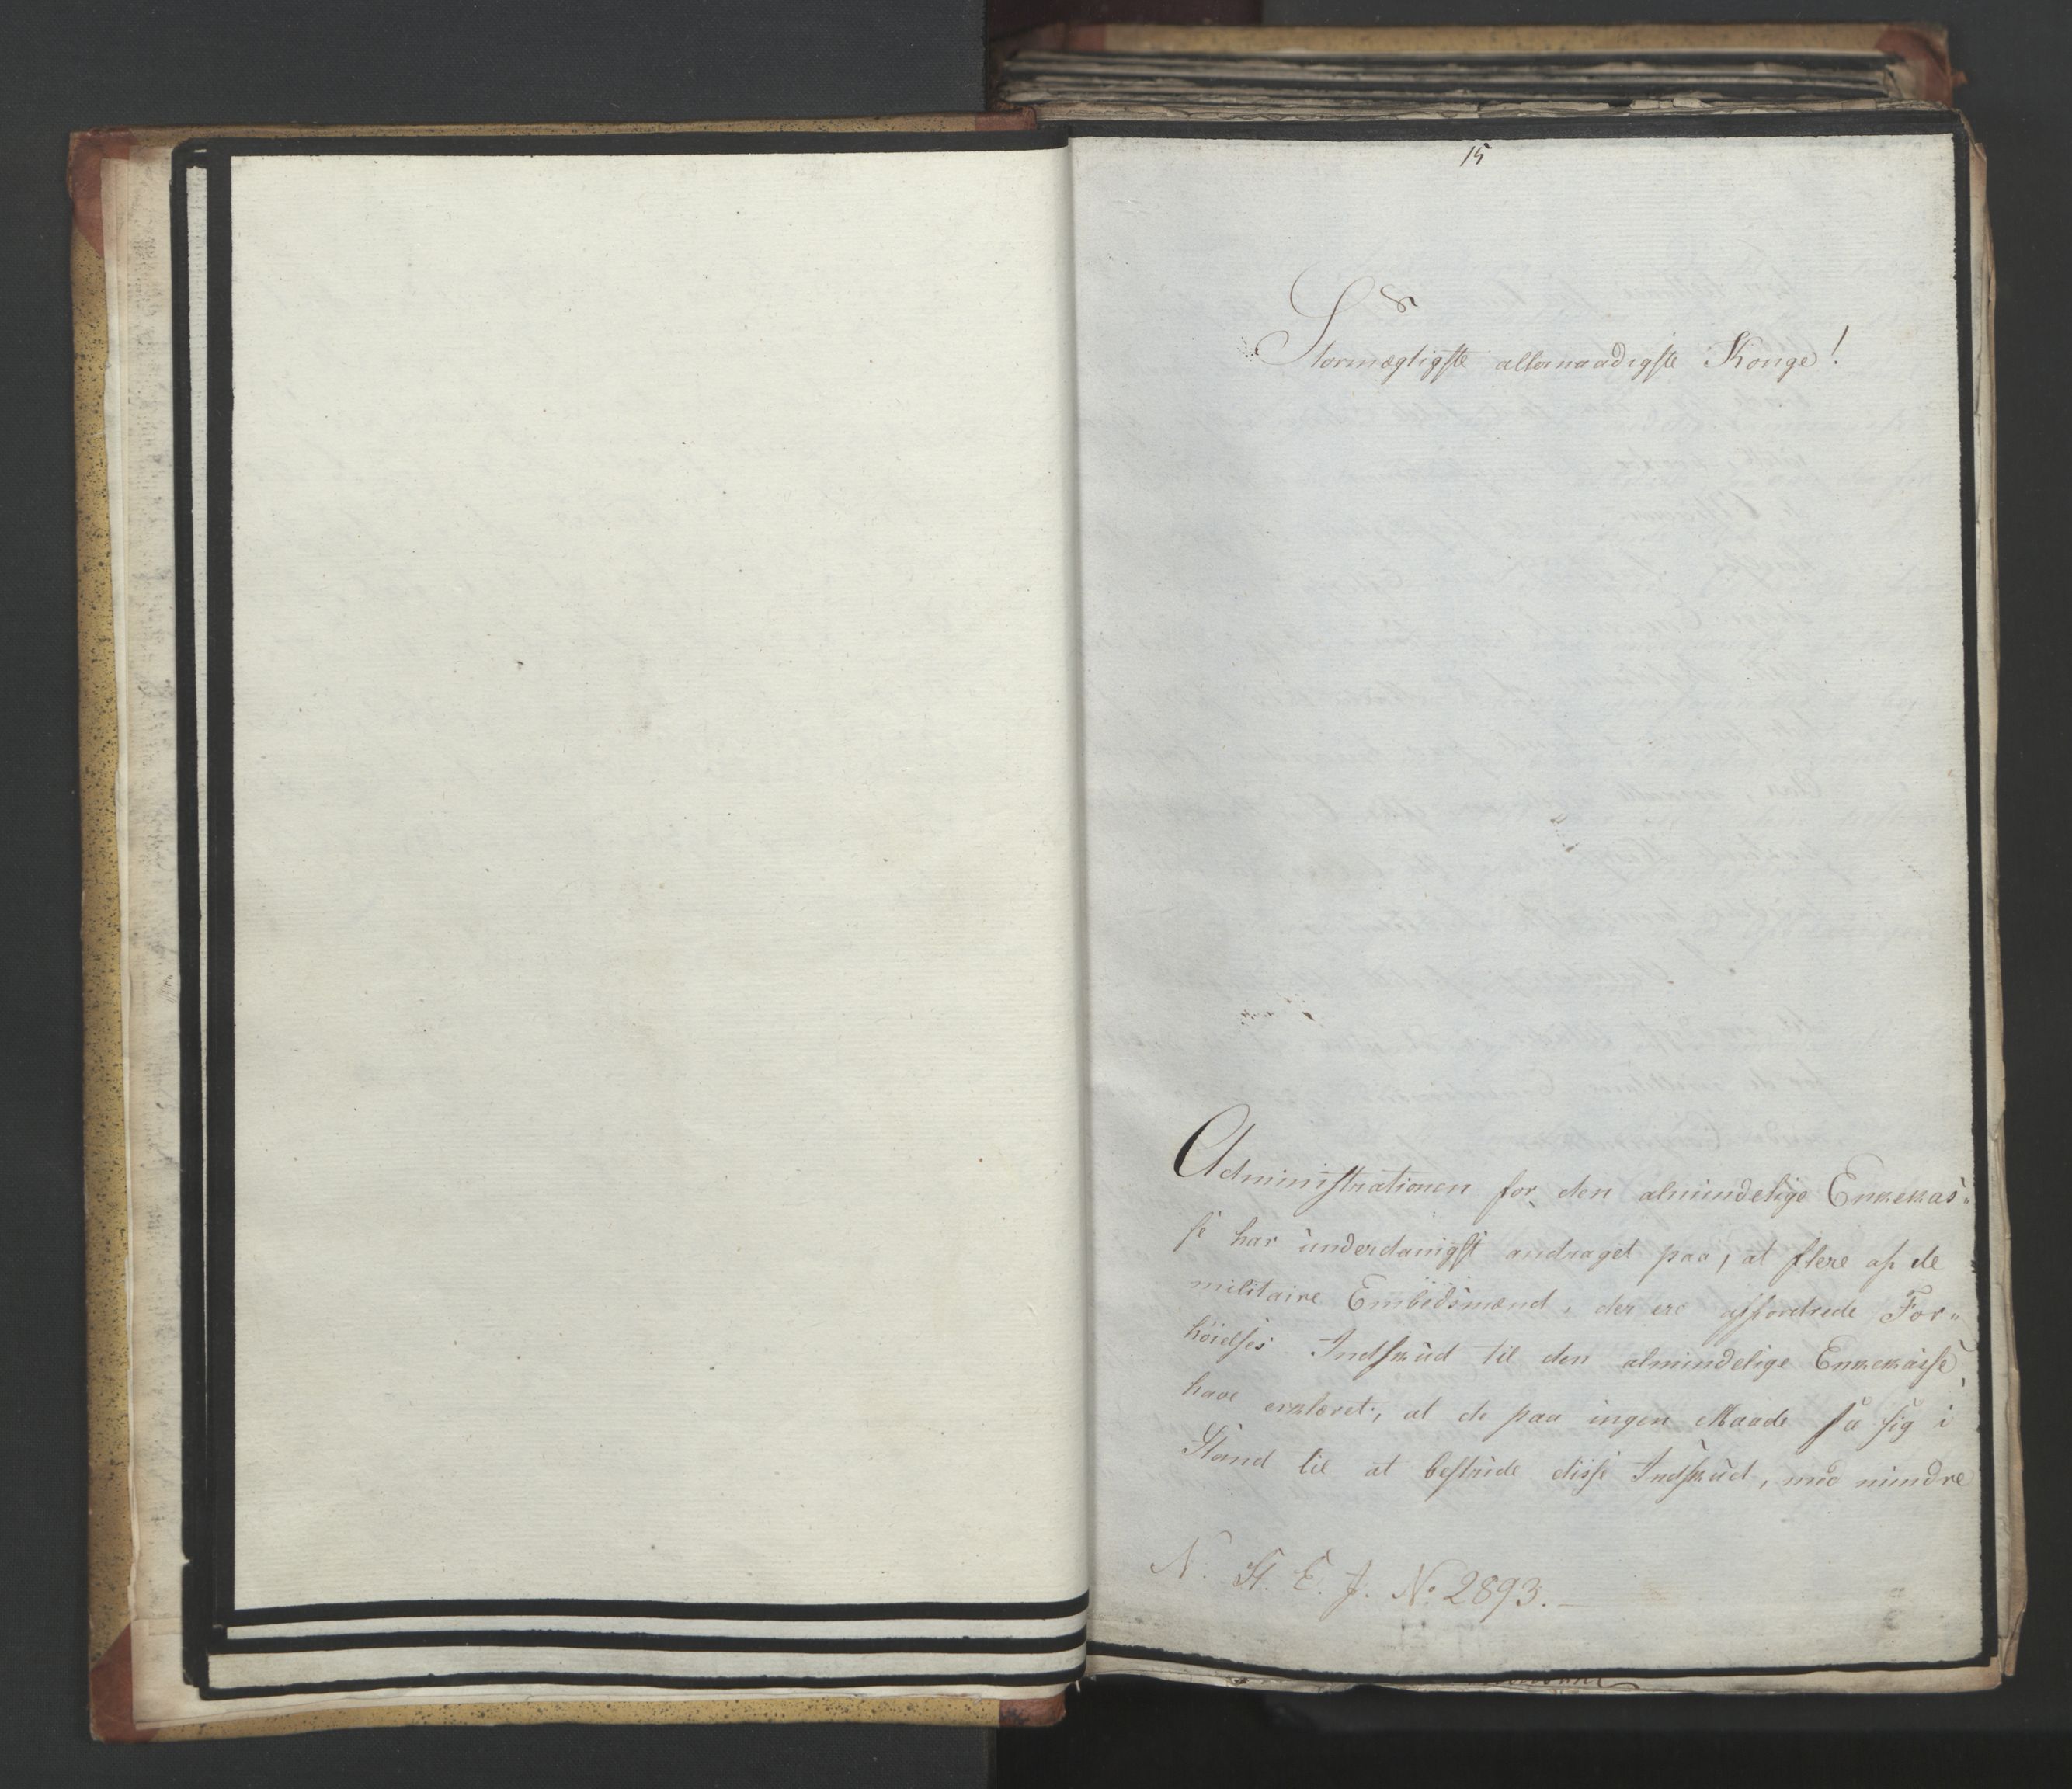 15
Stormægtigste allernaadigste Konge!
Administrationen for den almindelige Enkekas„
se har underdanigst andraget paa, at flere af de
militaire Embedsmænd, der ere affordrede For„
höielses Indskud til den almindelige Enkekasse,
have erklæret, at de paa ingen Maade see sig i
Stand til at bestride disse Indskud, med mindre
N. St. E. J. No 2893.